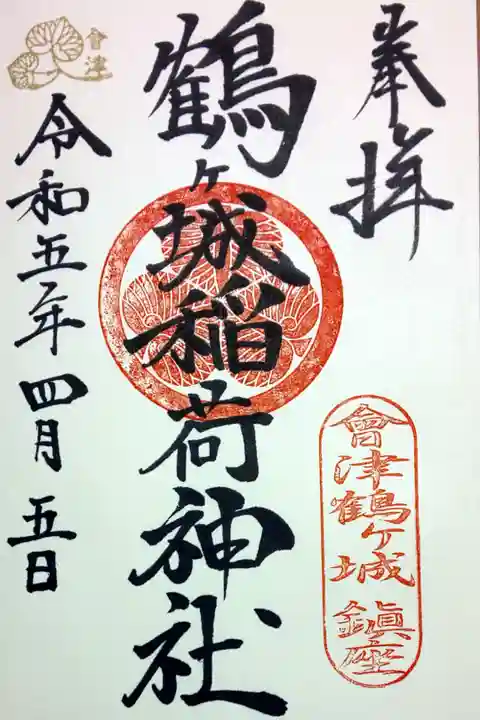 奉拝
會津鶴ヶ城
鎮座
鶴ヶ城稲荷神社
會津
令和五年四月五日